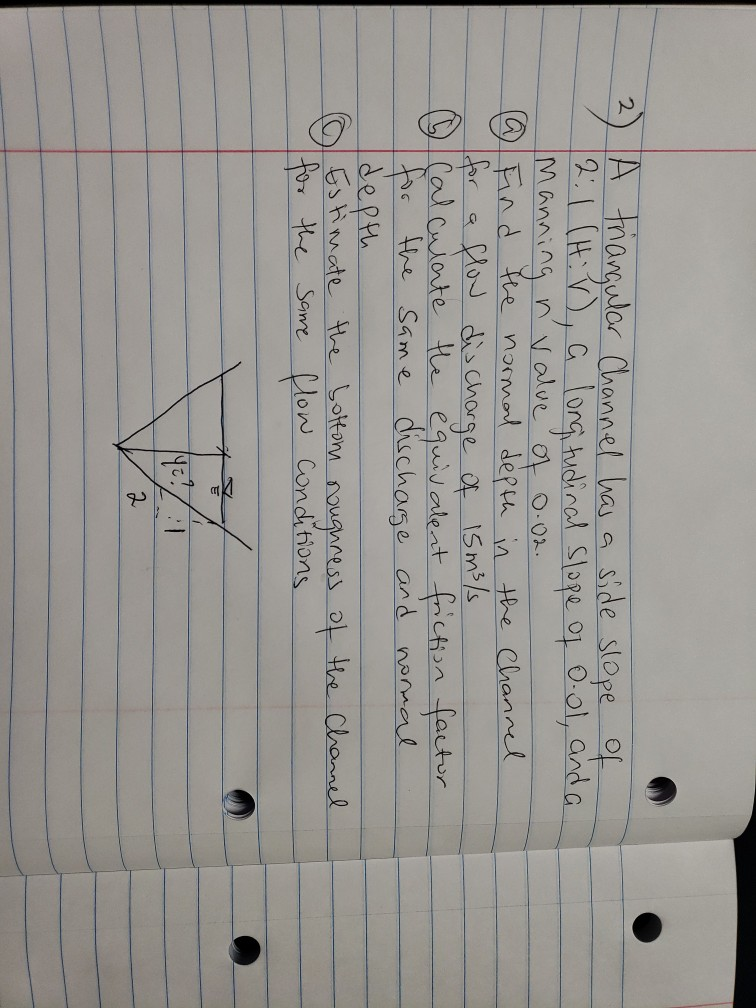 2) A triangular Channel has a side slope of
2:1 (H:V), a longitudinal slope of 0.01, and a
Manning n value of 0.02.
(a) Find the normal depth in the channel
for a flow discharge of 15m³/s
(b) Calculate the equivalent friction factor
for the same discharge and normal
depth
(c) Estimate the bottom roughness of the channel
for the same flow conditions
y=?
:1
2